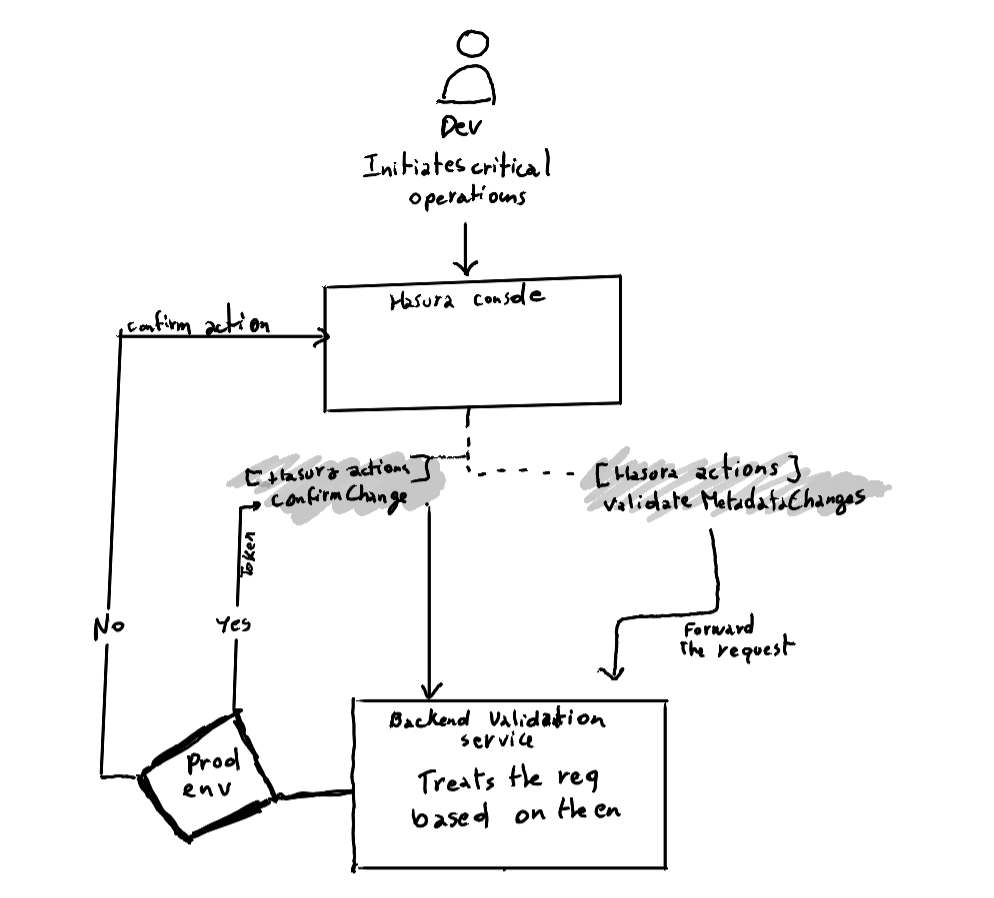 Dev
Initiates critical
operations
Hasura console
confirm action
[Hasura actions]
confirmChange
[Hasura actions]
validate MetadataChanges
Token
No
Yes
Forward
the request
Backend validation
service
Treats the req
based on the en
Prod
env